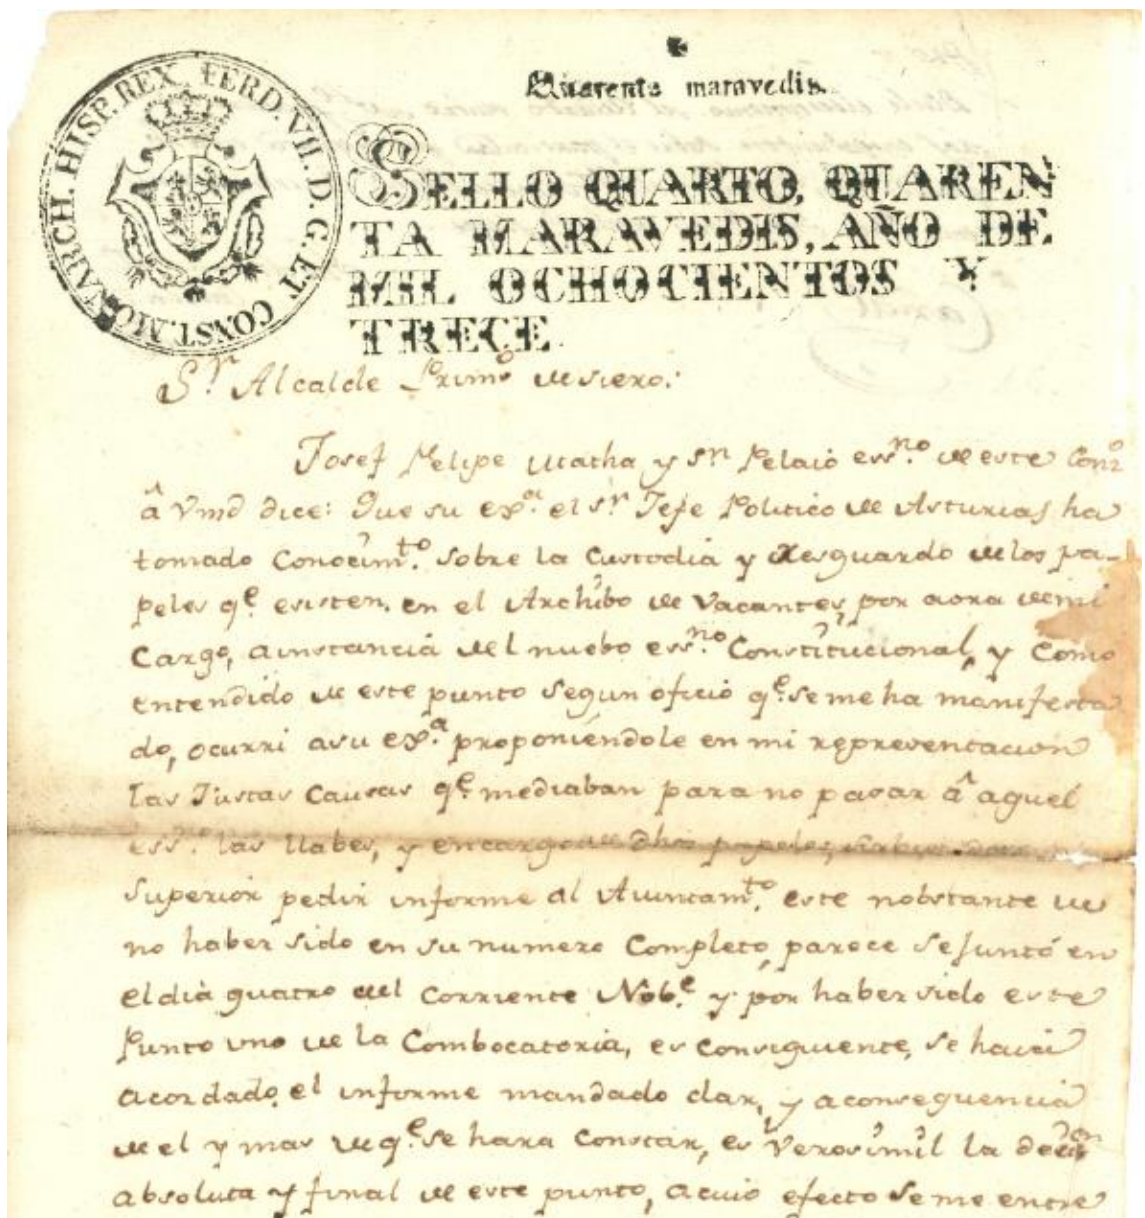 FERD. VII. D. G. ET CONST. MONARCH. HISP. REX
Quarenta maravedis.
SELLO QUARTO, QUAREN
TA MARAVEDIS, AÑO DE
MIL OCHOCIENTOS Y
TRECE.
Sr. Alcalde Primo. de Siero:
Josef Felipe y Sn. Pelaio essno. de este Conzo
â Vmd dice: Que su exa. el Sr. Jefe Politico de Asturias ha
tomado Conocimto. sobre la Custodia y Resguardo de los pa-
peles qe. existen, en el Archibo de Vacantes, por aora de mi
Cargo, a instancia del nuebo essno. Constitucional, y Como
entendido de este punto segun oficio qe. se me ha manifesta
do, ocurri a su exa. proponiendole en mi representacion
las Justas Causas qe. mediaban para no pasar â aquel
essno. las llabes, y encargo de dhos papeles,
superior pedir informe al Aiuntamto. este nobstante de
no haber sido en su numero Completo, parece se juntó en
el dia quatro del Corriente Nobe. y por haber sido este
Punto uno de la Combocatoria, es consiguiente, se havrá
acordado, el informe mandado dar, y a conseguencia
de el y mas de qe. se hara Constar, es Verosimil la decison
absoluta y final de este punto, a cuio efecto se me entre